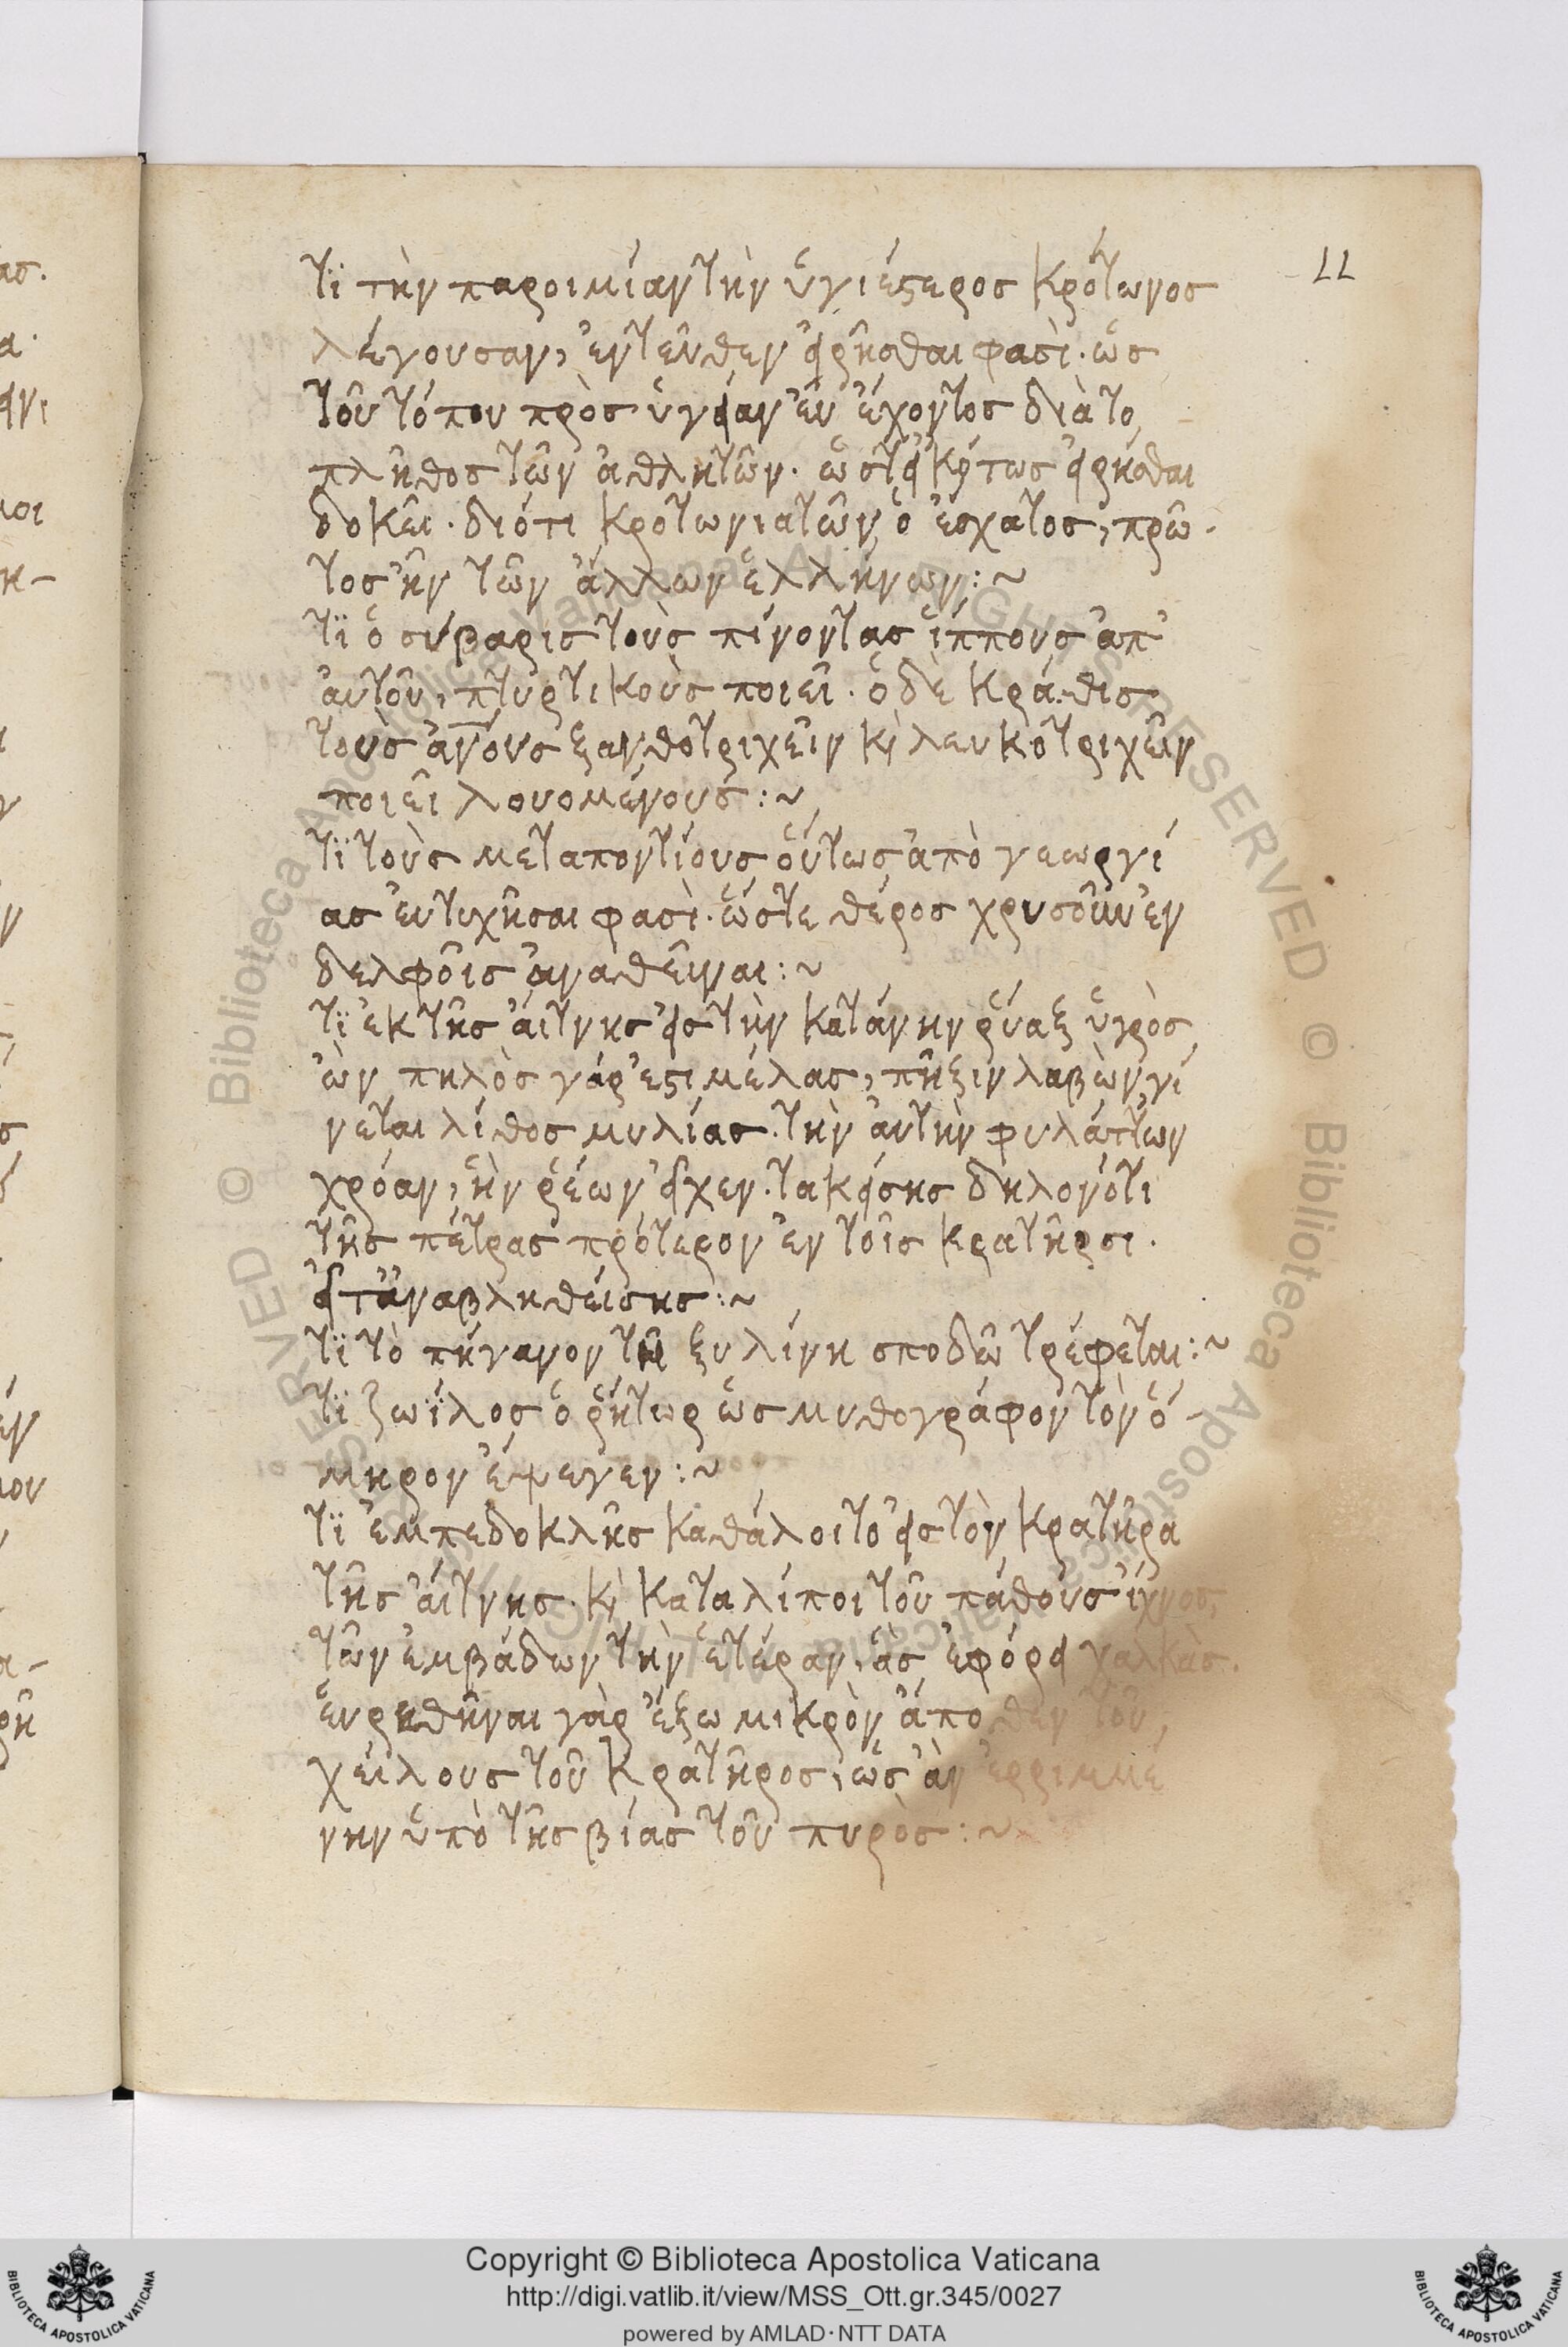 τϊ τὴν παροιμίαν τὴν ὑγιέστερος κρότωνος
λέγουσαν, ἐντεῦθεν εἰρῆσθαι φασὶ. ὡς
τοῦ τόπου πρὸς ὑγείαν εὖ ἔχοντος διὰ το
πλῆθος τῶν ἀθλητῶν. ὥστ' εἰκότως εἰρῆσθαι
δοκεῖ. διότι κροτωνιατῶν ὁ ἔσχατος, πρῶ
τος ἦν τῶν ἄλλων ἑλλήνων:~
τϊ ὁ σύβαρις τοὺς πίνοντας ἵππους ἀπ'
ἀυτοῦ, πτυρτικοὺς ποιεῖ. ὁ δὲ κράθις
τοὺς ἀν̅ους ξανθοτριχεῖν κὶ λευκοτριχεῖν
ποιεῖ λουομένους:~
τϊ τοὺς μεταποντίους ὅυτως ἀπὸ γεωργί
ας ἐυτυχῆσαι φασὶ. ὥστε θέρος χρυσοῦν ἐν
δελφοῖς ἀναθεῖναι:~
τϊ ἐκ τῆς ἄιτνης εἰς τὴν κατάνην ῥύαξ ὑγρὸς
ὢν πηλὸς γάρ ἐστι μέλας, πῆξιν λαβὼν γί
νεται λίθος μυλίας. τὴν ἀυτὴν φυλάττων
χρόαν, ἣν ῥέων εἶχεν. τακείσης δηλονότι
τῆς πέτρας πρότερον ἐν τοῖς κρατῆρσι.
εἶτ' ἀναβληθείσης:~
τϊ τὸ πήγανον τῆ ξυλίνη σποδῶ τρέφεται:~
τϊ ζωΐλος ὁ ῥήτωρ ὡς μυθογράφον τὸν ὅ-
μηρον ἔψεγεν:~
τϊ ἐμπεδοκλῆς καθάλοιτο εἰς τὸν κρατῆρα
τῆς ἄιτνης. κὶ καταλίποι τοῦ πάθους ἴχνος,
τῶν ἐμβάδων τὴν ἑτέραν, ἃς ἐφόρει χαλκὰς.
ἑυρεθῆναι γὰρ ἔξω μικρὸν ἄποθεν τοῦ
χείλους τοῦ κρατῆρος, ὡς ἀν ἐρριμμέ
νην ὑπὸ τῆς βίας τοῦ πυρὸς:~
22
Copyright © Biblioteca Apostolica Vaticana
http://digi.vatlib.it/view/MSS_Ott.gr.345/0027
powered by AMLAD·NTT DATA
BIBLIOTECA APOSTOLICA VATICANA
BIBLIOTECA APOSTOLICA VATICANA